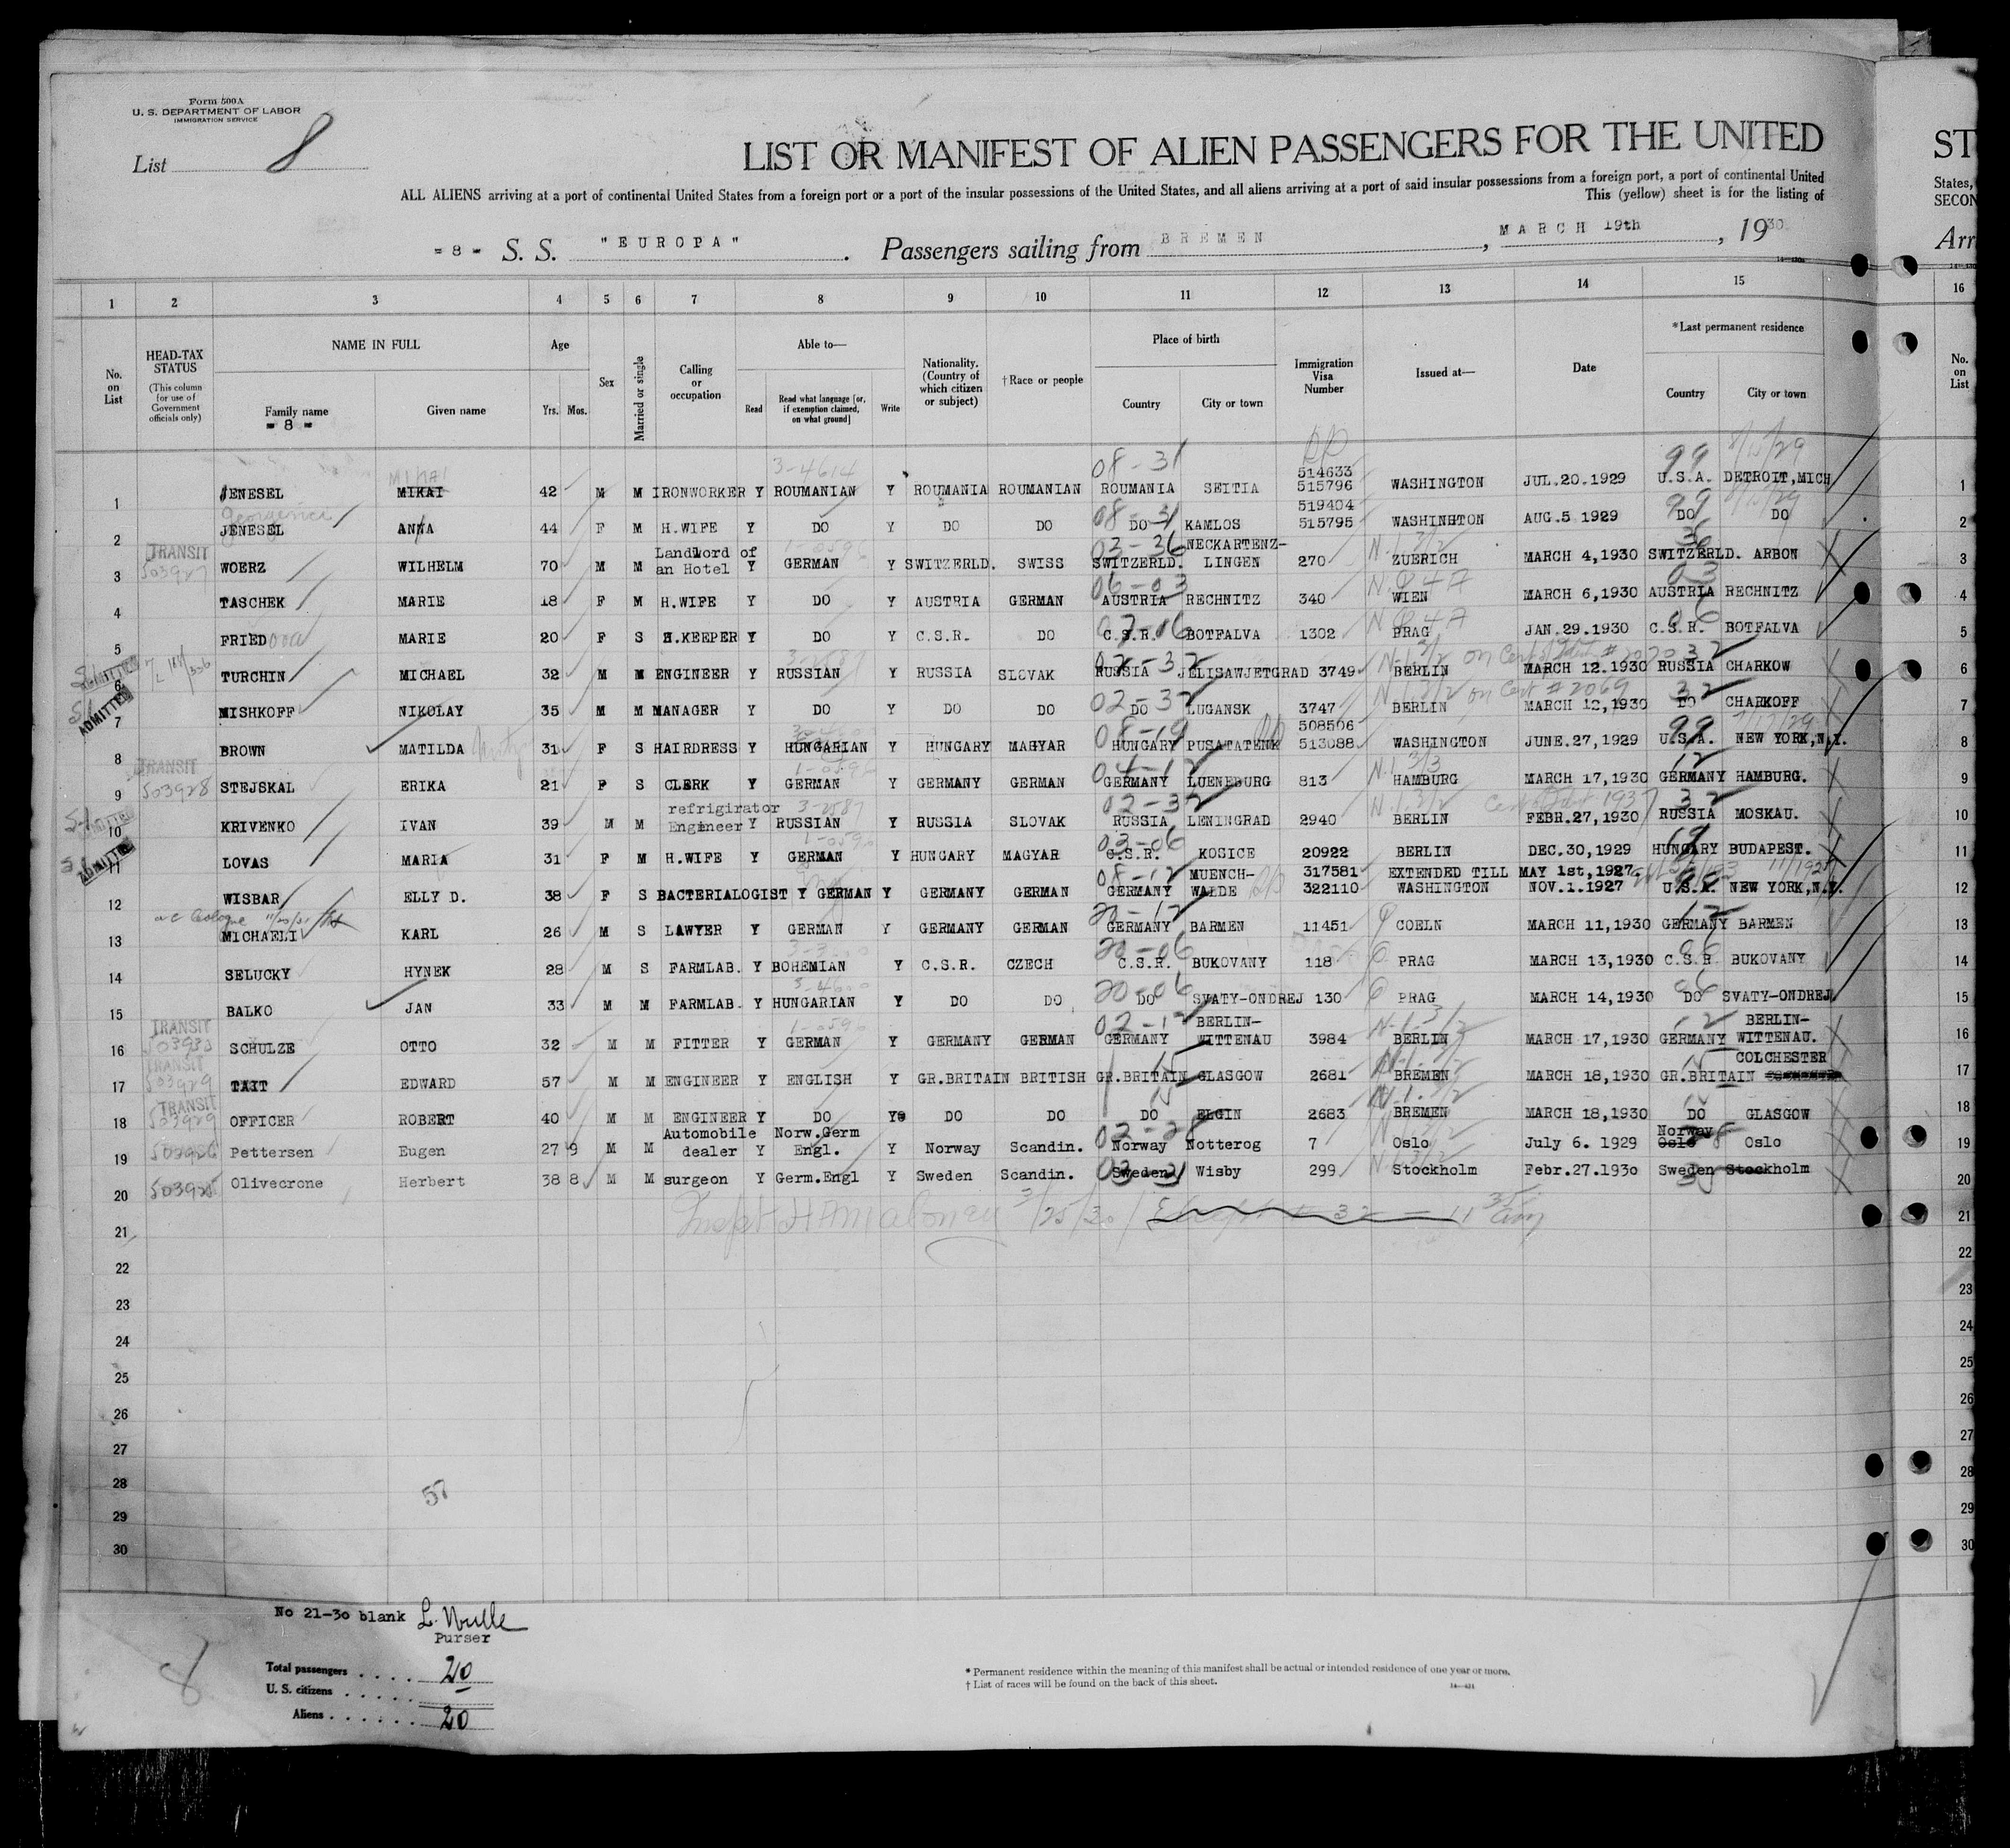 Form 500A
U. S. DEPARTMENT OF LABOR
IMMIGRATION SERVICE
List 8
LIST OR MANIFEST OF ALIEN PASSENGERS FOR THE UNITED
ST
ALL ALIENS arriving at a port of continental United States from a foreign port or a port of the insular possessions of the United States, and all aliens arriving at a port of said insular possessions from a foreign port, a port of continental United
States,
This (yellow) sheet is for the listing of
SECON
= 8 = S. S. "EUROPA". Passengers sailing from BREMEN, MARCH 19th, 1930.
Arr
1 2 3 4 5 6 7 8 9 10 11 12 13 14 15 16
No. on List
HEAD-TAX STATUS (This column for use of Government officials only)
NAME IN FULL Family name = 8 = Given name
Age Yrs. Mos.
Sex
Married or single
Calling or occupation
Able to— Read Read what language [or, if exemption claimed, on what ground] Write
Nationality. (Country of which citizen or subject)
†Race or people
Place of birth Country City or town
Immigration Visa Number
Issued at—
Date
*Last permanent residence Country City or town
No. on List
08-31 99 8/15/29
3-4614
514633
1 JENESEL MIKAI 42 M M IRONWORKER Y ROUMANIAN Y ROUMANIA ROUMANIAN ROUMANIA SEITIA 515796 WASHINGTON JUL.20.1929 U.S.A. DETROIT,MICH 1
519404
2 JENESEL ANNA 44 F M H.WIFE Y DO Y DO DO DO KAMLOS 515795 WASHINGTON AUG.5 1929 DO DO 2
TRANSIT 503927
3 WOERZ WILHELM 70 M M Landlword of an Hotel Y GERMAN Y SWITZERLD. SWISS SWITZERLD. NECKARTENZ-LINGEN 270 ZUERICH MARCH 4,1930 SWITZERLD. ARBON 3
4 TASCHEK MARIE 18 F M H.WIFE Y DO Y AUSTRIA GERMAN AUSTRIA RECHNITZ 340 WIEN MARCH 6,1930 AUSTRIA RECHNITZ 4
5 FRIEDova MARIE 20 F S H.KEEPER Y DO Y C.S.R. DO C.S.R. BOTFALVA 1302 PRAG JAN.29.1930 C.S.R. BOTFALVA 5
ADMITTED
6 TURCHIN MICHAEL 32 M M ENGINEER Y RUSSIAN Y RUSSIA SLOVAK RUSSIA JELISAWJETGRAD 3749 BERLIN MARCH 12.1930 RUSSIA CHARKOW 6
ADMITTED
on Cert # 2069
7 MISHKOFF NIKOLAY 35 M M MANAGER Y DO Y DO DO DO LUGANSK 3747 BERLIN MARCH 12,1930 DO CHARKOFF 7
508506
8 BROWN MATILDA 31 F S HAIRDRESS Y HUNGARIAN Y HUNGARY MAGYAR HUNGARY PUSATATENK 513088 WASHINGTON JUNE.27,1929 U.S.A. NEW YORK,N.Y. 8
TRANSIT 503928
9 STEJSKAL ERIKA 21 F S CLERK Y GERMAN Y GERMANY GERMAN GERMANY LUENEBURG 813 HAMBURG MARCH 17,1930 GERMANY HAMBURG. 9
10 KRIVENKO IVAN 39 M M refrigirator Engineer Y RUSSIAN Y RUSSIA SLOVAK RUSSIA LENINGRAD 2940 BERLIN FEBR.27,1930 RUSSIA MOSKAU. 10
ADMITTED
11 LOVAS MARIA 31 F M H.WIFE Y GERMAN Y HUNGARY MAGYAR C.S.R. KOSICE 20922 BERLIN DEC.30,1929 HUNGARY BUDAPEST. 11
MUENCH- 317581 EXTENDED TILL MAY 1st,1927
12 WISBAR ELLY D. 38 F S BACTERIALOGIST Y GERMAN Y GERMANY GERMAN GERMANY WALDE 322110 WASHINGTON NOV.1.1927 U.S.A. NEW YORK,N.Y. 12
13 MICHAELI KARL 26 M S LAWYER Y GERMAN Y GERMANY GERMAN GERMANY BARMEN 11451 COELN MARCH 11,1930 GERMANY BARMEN 13
14 SELUCKY HYNEK 28 M S FARMLAB. Y BOHEMIAN Y C.S.R. CZECH C.S.R. BUKOVANY 118 PRAG MARCH 13,1930 C.S.R BUKOVANY 14
15 BALKO JAN 33 M M FARMLAB. Y HUNGARIAN Y DO DO DO SVATY-ONDREJ 130 PRAG MARCH 14,1930 DO SVATY-ONDREJ 15
TRANSIT
BERLIN- BERLIN-
16 SCHULZE OTTO 32 M M FITTER Y GERMAN Y GERMANY GERMAN GERMANY WITTENAU 3984 BERLIN MARCH 17,1930 GERMANY WITTENAU. 16
TRANSIT 503929
COLCHESTER
17 TAIT EDWARD 57 M M ENGINEER Y ENGLISH Y GR.BRITAIN BRITISH GR.BRITAIN GLASGOW 2681 BREMEN MARCH 18,1930 GR.BRITAIN 17
TRANSIT 503929
18 OFFICER ROBERT 40 M M ENGINEER Y DO Y DO DO DO ELGIN 2683 BREMEN MARCH 18,1930 DO GLASGOW 18
Automobile Norw.Germ Norway
19 Pettersen Eugen 27 9 M M dealer Y Engl. Y Norway Scandin. Norway Notterog 7 Oslo July 6. 1929 Oslo Oslo 19
20 503925 Olivecrone Herbert 38 8 M M surgeon Y Germ.Engl Y Sweden Scandin. Sweden Wisby 299 Stockholm Febr.27.1930 Sweden Stockholm 20
21 21
22 22
23 23
24 24
25 25
26 26
27 27
28 28
57
29 29
30 30
No 21-30 blank
Purser
Total passengers . . . . 20
U. S. citizens . . . . .
Aliens . . . . . . 20
8
* Permanent residence within the meaning of this manifest shall be actual or intended residence of one year or more.
† List of races will be found on the back of this sheet.